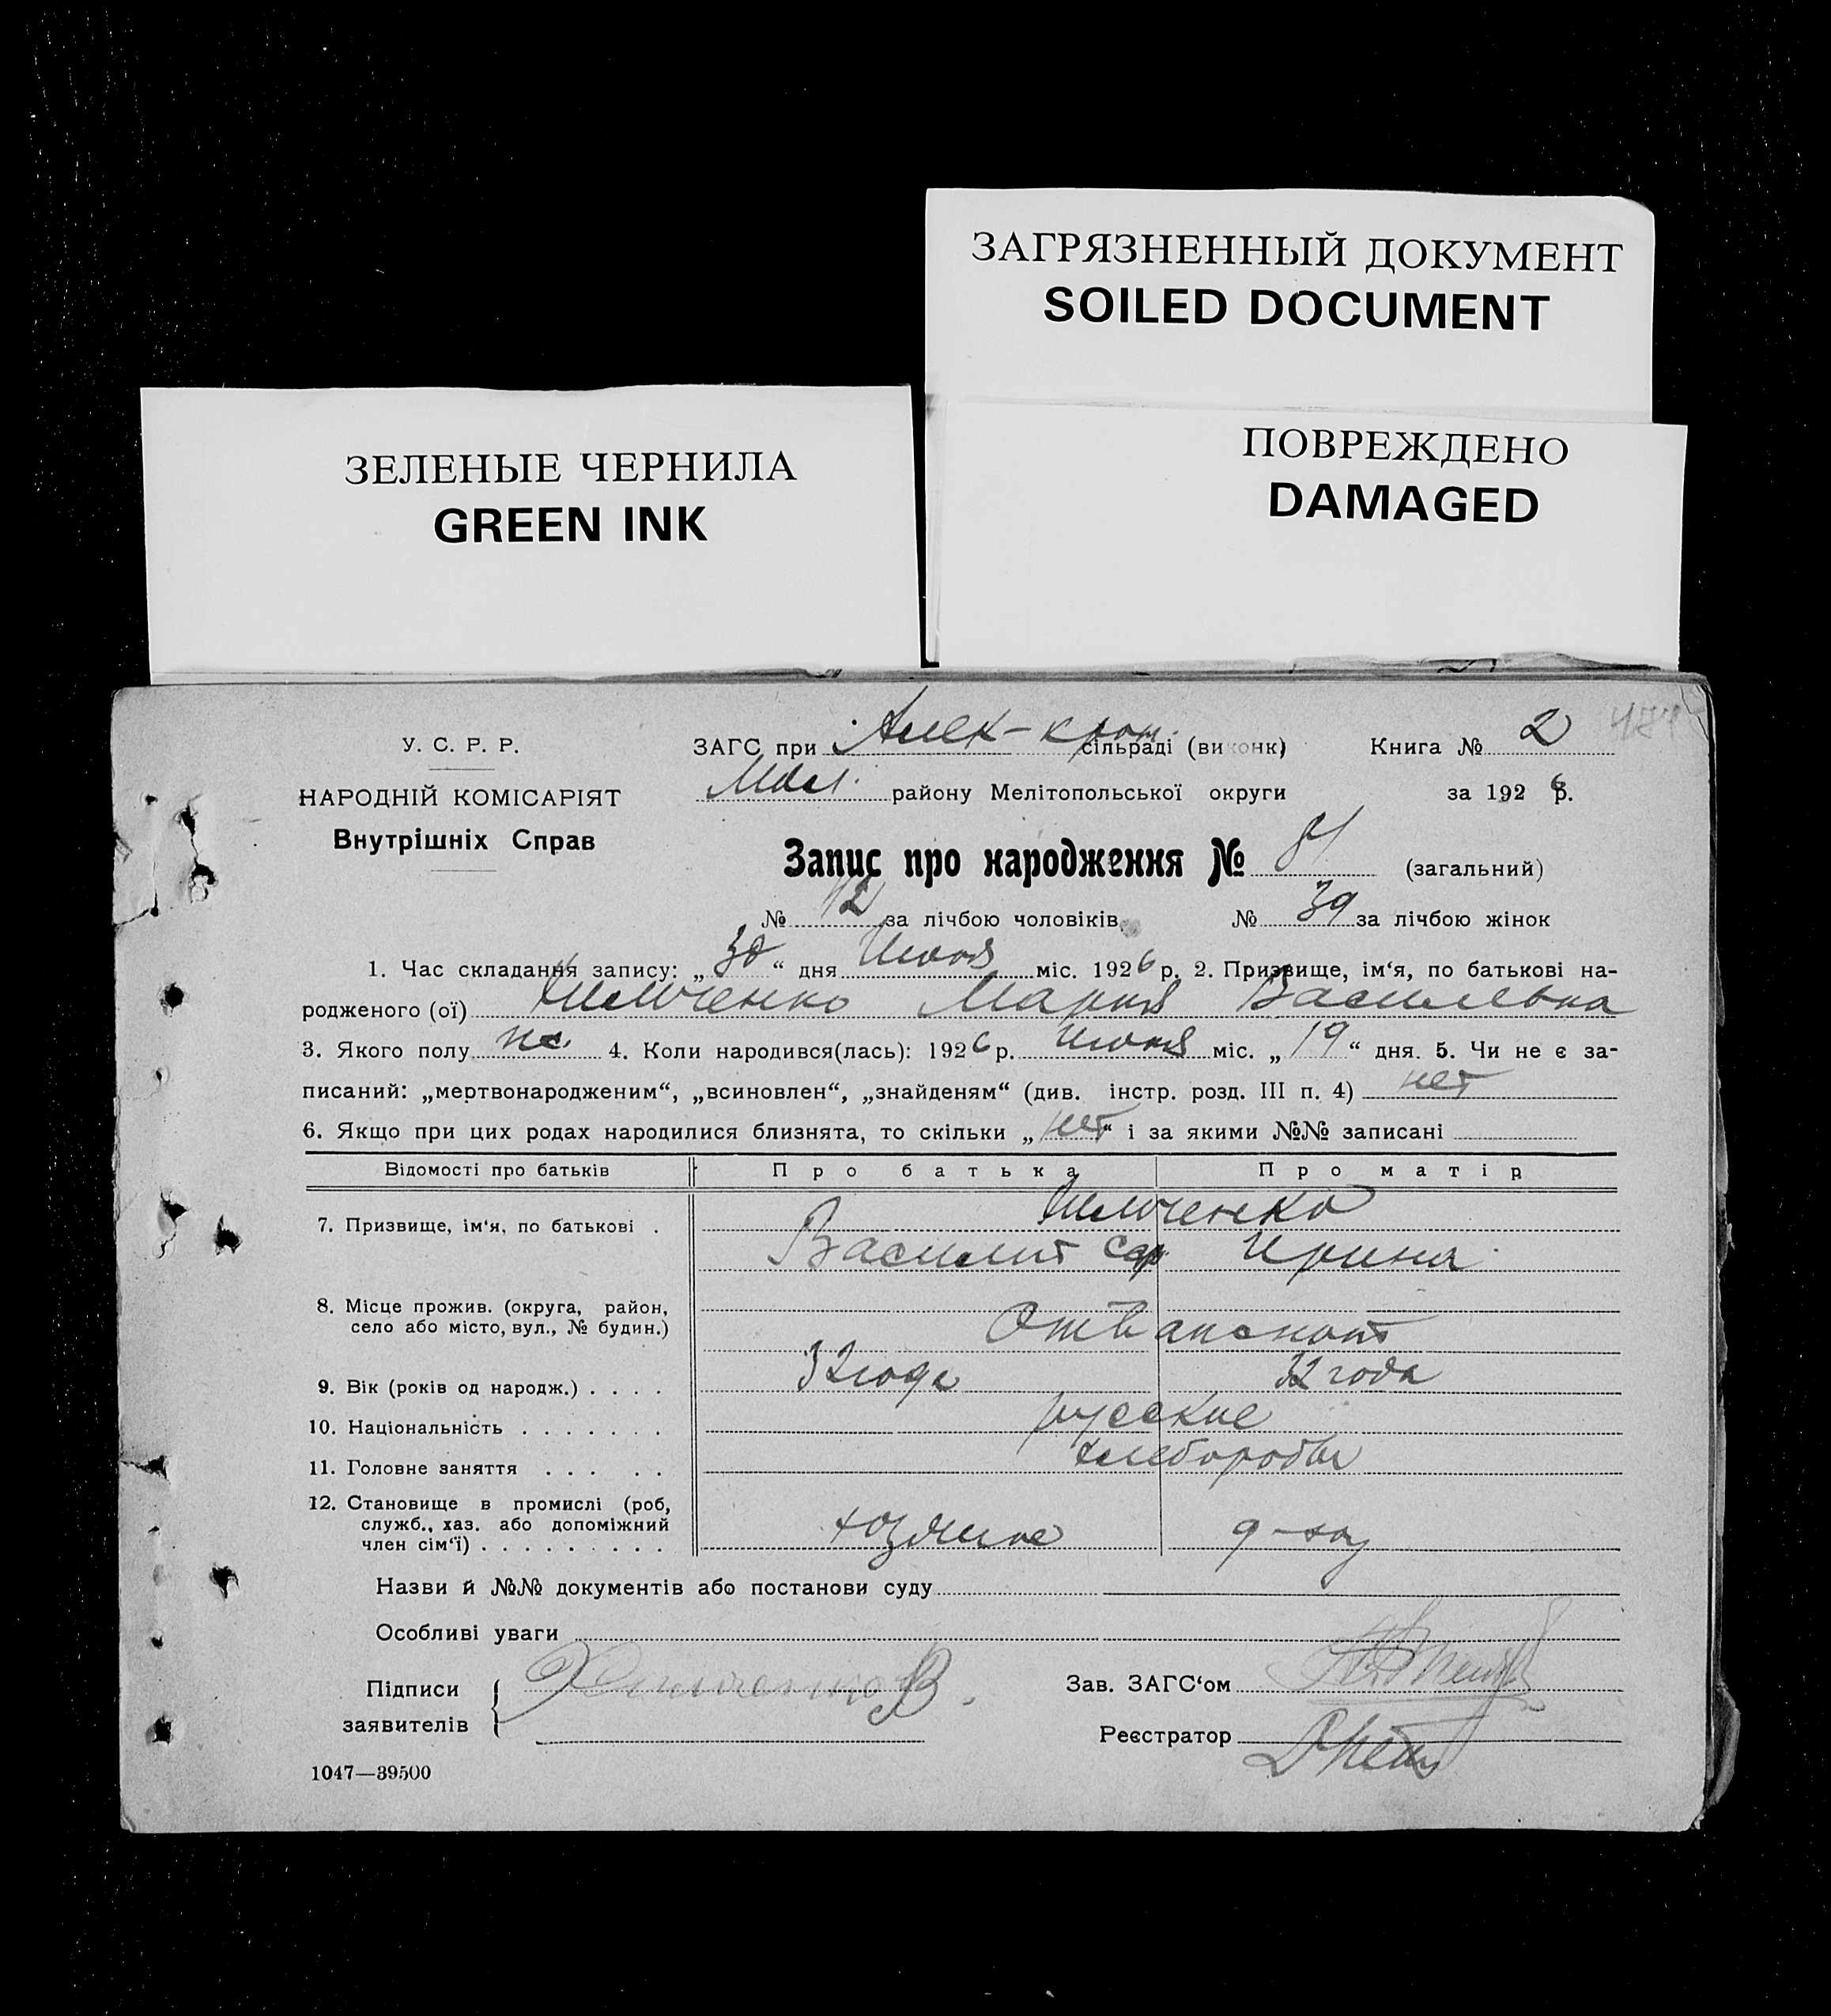 ЗАГРЯЗНЕННЫЙ ДОКУМЕНТ
SOILED DOCUMENT
ЗЕЛЕНЫЕ ЧЕРНИЛА
GREEN INK
ПОВРЕЖДЕНО
DAMAGED
У. С. Р. Р.
НАРОДНІЙ КОМІСАРІЯТ
Внутрішніх Справ
ЗАГС при Алек- сільраді (виконк) Книга № 2
району Мелітопольської округи за 1926 р.
Запис про народження № 81 (загальний)
№ 42 за лічбою чоловіків, № 39 за лічбою жінок
1. Час складання запису: „30“ дня міс. 1926 р. 2. Призвище, ім‘я, по батькові на-
родженого (ої) Мария Василевна
3. Якого полу 4. Коли народився(лась): 1926 р. міс. „19“ дня. 5. Чи не є за-
писаний: „мертвонародженим“, „всиновлен“, „знайденям“ (див. інстр. розд. III п. 4) нет
6. Якщо при цих родах народилися близнята, то скільки „нет“ і за якими №№ записані
Відомості про батьків Про батька Про матір
7. Призвище, ім‘я, по батькові .
Ирина
8. Місце прожив. (округа, район,
село або місто, вул., № будин.)
9. Вік (років од народж.) . . . . 32 года 32 года
10. Національність . . . . . . . русские
11. Головне заняття . . . . . хлеборобы
12. Становище в промислі (роб,
служб., хаз. або допоміжний
член сім‘ї) . . . . . . . . .
Назви й №№ документів або постанови суду
Особливі уваги
Підписи
заявителів
Зав. ЗАГС‘ом
Реєстратор
1047—39500